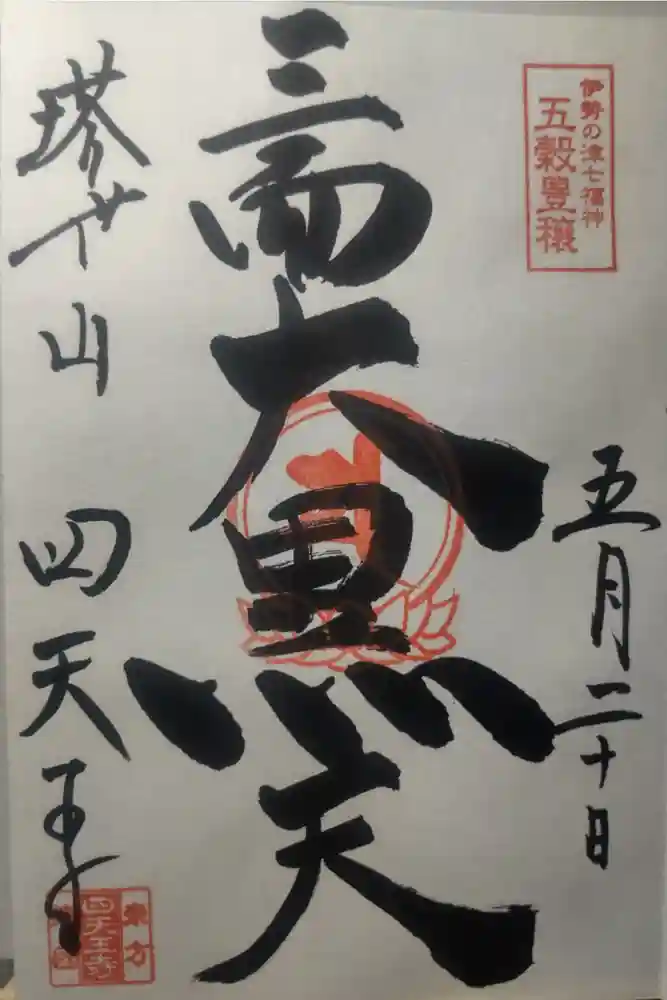 伊勢の津七福神
五穀豊穣
五月二十日
大黒天
塔世山 四天王寺
四天王寺